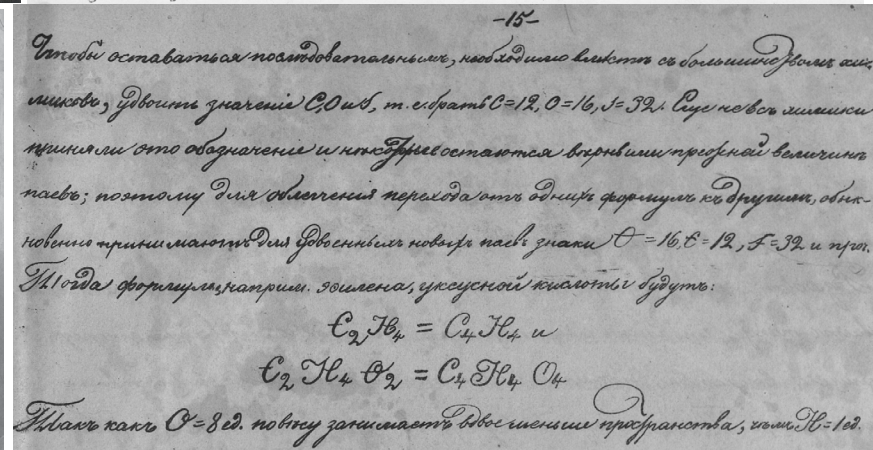 -15-
Чтобы оставаться последовательнымъ, необходимо вмѣстѣ съ большинствомъ хи-
миковъ, удвоить значеніе C, O и S, т. е. брать C=12, O=16, S=32. Еще не всѣ химики
приняли это обозначеніе и нѣкоторые остаются вѣрными прежней величинѣ
паевъ; поэтому для облегченія перехода отъ однихъ формулъ къ другимъ, обык-
новенно принимаютъ для удвоенныхъ новыхъ паевъ знаки Ɵ=16, Є=12, S=32 и проч.
Тогда формулы, наприм. эѳилена, уксусной кислоты будутъ:
Є₂H₄ = C₄H₄ и
Є₂H₄Ɵ₂ = C₄H₄O₄
Такъ какъ O=8 ед. по вѣсу занимаетъ вдвое меньше пространства, чѣмъ H=1 ед.